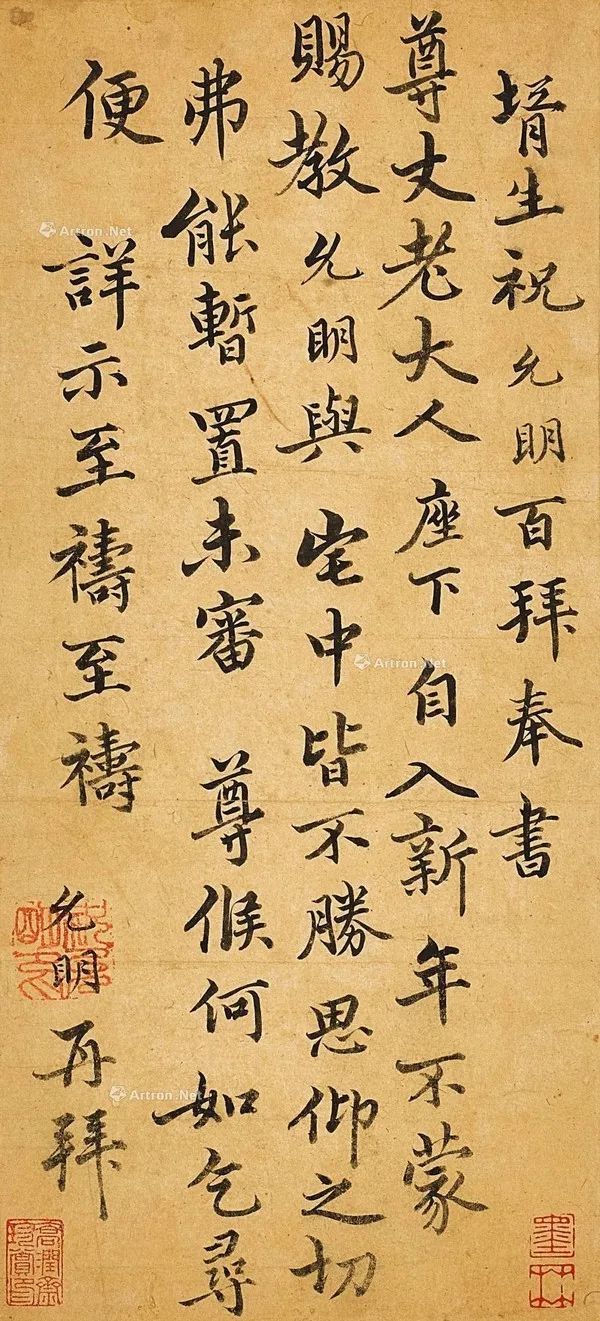 壻生祝允明百拜奉書
尊丈老大人 座下 自入新年不蒙
賜教允明與 宅中皆不勝思仰之切
弗能暫置未審 尊候何如乞尋
便 詳示至禱至禱
允明再拜
Artron.Net
Artron.Net
Artron.Net